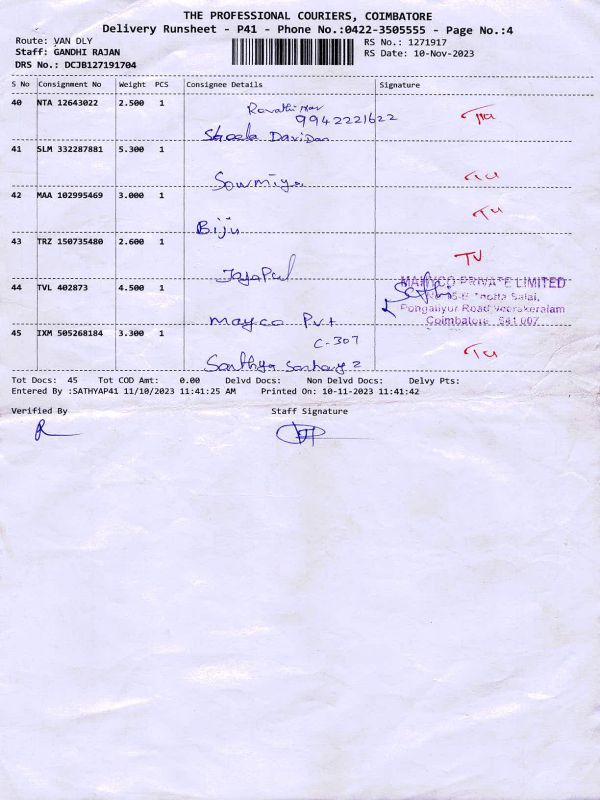 THE PROFESSIONAL COURIERS, COIMBATORE
Delivery Runsheet - P41 - Phone No.:0422-3505555 - Page No.:4
Route: VAN DLY
RS No.: 1271917
Staff: GANDHI RAJAN
RS Date: 10-Nov-2023
DRS No.: DCJB127191704
S No Consignment No Weight PCS Consignee Details Signature
40 NTA 12643022 2.500 1
9942221622
Sheela Davidan
41 SLM 332287881 5.300 1
Sowmiya
42 MAA 102995469 3.000 1
Biju
43 TRZ 150735480 2.600 1 TV
Jayapal
44 TVL 402873 4.500 1
MAYCO PRIVATE LIMITED
Salai,
Pongaliyur Road, Veerakeralam
Coimbatore 641 007
Mayco Pvt
45 IXM 505268184 3.300 1
C-307
Tot Docs: 45 Tot COD Amt: 0.00 Delvd Docs: Non Delvd Docs: Delvy Pts:
Entered By :SATHYAP41 11/10/2023 11:41:25 AM Printed On: 10-11-2023 11:41:42
Verified By Staff Signature